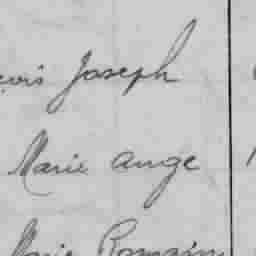 Joseph
Marie Ange
Marie Romain